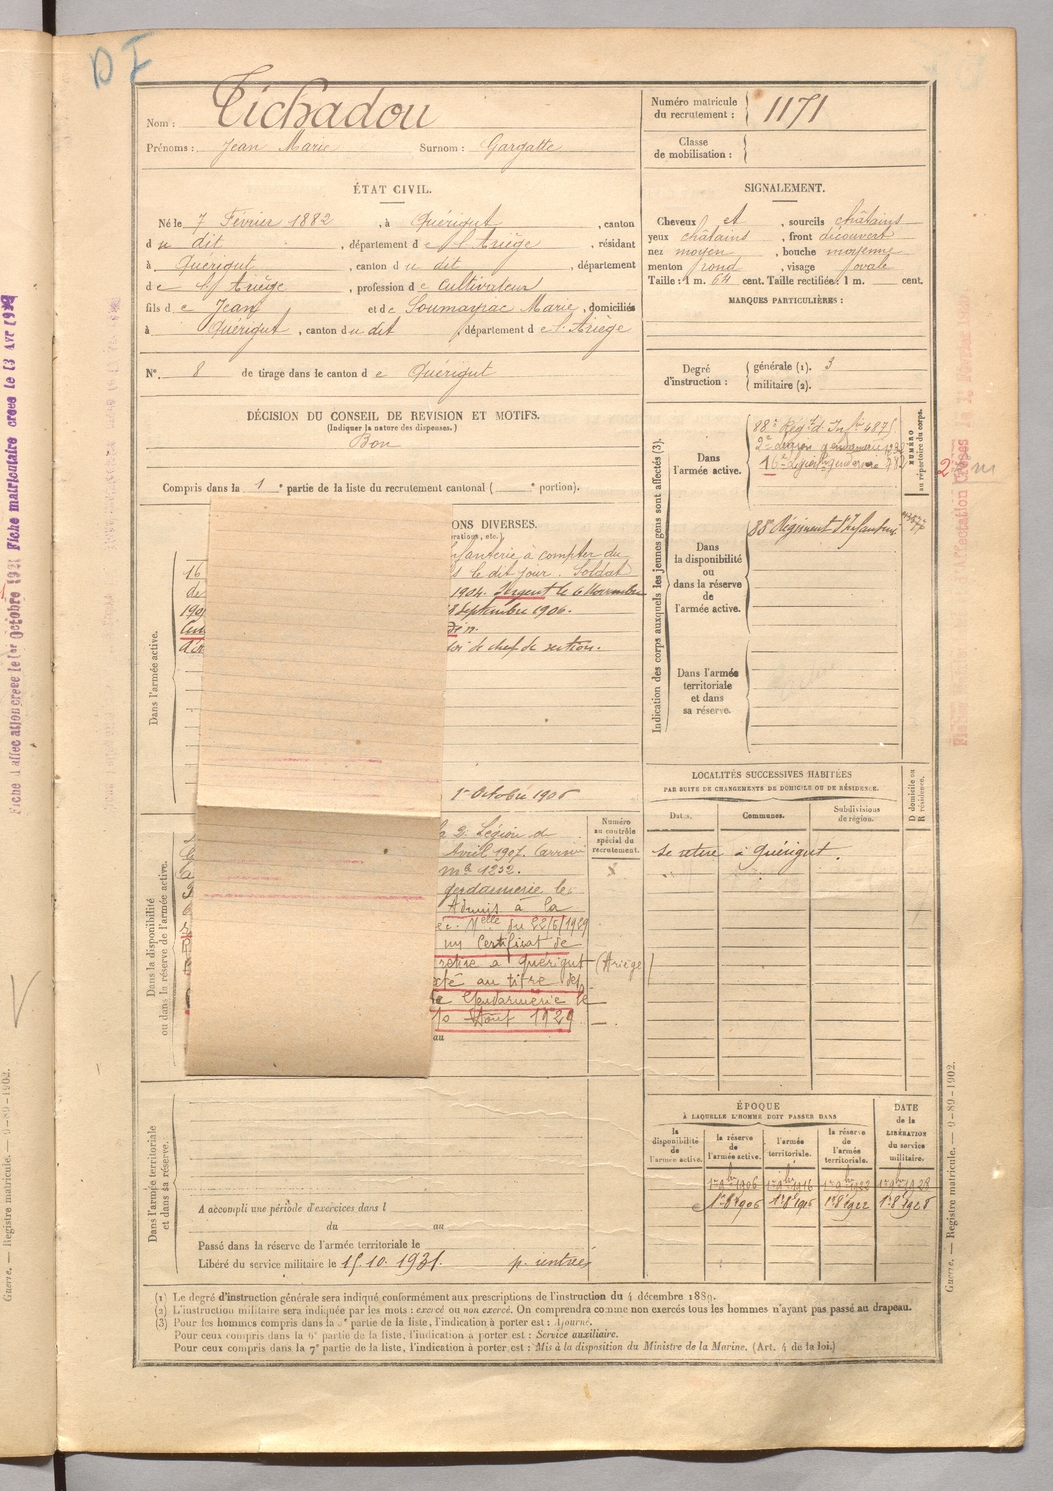 DF
Nom : Tichadou
Prénoms : Jean Marie Surnom : Gargatte
Numéro matricule du recrutement : 1171
Classe de mobilisation :
ÉTAT CIVIL.
Né le 7 Février 1882, à Quérigut, canton
du dit, département de l'Ariège, résidant
à Quérigut, canton du dit, département
de l'Ariège, profession de Cultivateur
fils de Jean et de Soumayrac Marie, domiciliés
à Quérigut, canton du dit, département de l'Ariège
N° 8 de tirage dans le canton de Quérigut
SIGNALEMENT.
Cheveux et, sourcils châtains
yeux châtains, front découvert
nez moyen, bouche moyenne
menton rond, visage ovale
Taille : 1 m. 64 cent. Taille rectifiée : 1 m. cent.
MARQUES PARTICULIÈRES :
Degré d'instruction : générale (1). 3
militaire (2).
DÉCISION DU CONSEIL DE REVISION ET MOTIFS.
(Indiquer la nature des dispenses.)
Bon
Compris dans la 1e partie de la liste du recrutement cantonal ( e portion).
ONS DIVERSES.
rations, etc.).
Dans l'armée active.
nfanterie à compter du
16 le dit jour. Soldat
de 1904. Sergent le 6 Novembre
190 8 septembre 1906.
de chef de section.
1er Octobre 1906
Dans la disponibilité
ou dans la réserve de l'armée active.
la 2e Légion de
Avril 1907. Carrin
mle 1232.
gendarmerie le
Admis à la
Melle du 22/6/1929
un Certificat de
retire à Quérigut (Ariège)
cté au titre des
Gendarmerie le
10 Août 1929
au
Numéro
au contrôle
spécial du
recrutement.
X
Dans l'armée territoriale
et dans sa réserve.
A accompli une période d'exercices dans l
du au
Passé dans la réserve de l'armée territoriale le
Libéré du service militaire le 15.10.1931.
Indication des corps auxquels les jeunes gens sont affectés (3).
NUMÉRO
au répertoire du corps.
Dans
l'armée active.
88e Régt d'Infie 4875
2e Légion gendarmerie
16e gendarmerie
Dans
la disponibilité
ou
dans la réserve
de
l'armée active.
88e Régiment d'Infanterie
Dans l'armée
territoriale
et dans
sa réserve.
LOCALITÉS SUCCESSIVES HABITÉES
PAR SUITE DE CHANGEMENTS DE DOMICILE OU DE RÉSIDENCE.
D domicile ou
R résidence.
Dates. Communes. Subdivisions
de région.
se retire à Quérigut.
ÉPOQUE
À LAQUELLE L'HOMME DOIT PASSER DANS
DATE
de la
LIBÉRATION
du service
militaire.
la
disponibilité
de
l'armée active.
la réserve
de
l'armée active.
l'armée
territoriale.
la réserve
de
l'armée
territoriale.
1er 9bre 1906 1er 9bre 1916 1er 9bre 1922 1er 9bre 1928
1er 8bre 1906 1er 8bre 1916 1er 8bre 1922 1er 8bre 1928
(1) Le degré d'instruction générale sera indiqué conformément aux prescriptions de l'instruction du 4 décembre 1889.
(2) L'instruction militaire sera indiquée par les mots : exercé ou non exercé. On comprendra comme non exercés tous les hommes n'ayant pas passé au drapeau.
(3) Pour les hommes compris dans la 5e partie de la liste, l'indication à porter est : Ajourné.
Pour ceux compris dans la 6e partie de la liste, l'indication à porter est : Service auxiliaire.
Pour ceux compris dans la 7e partie de la liste, l'indication à porter est : Mis à la disposition du Ministre de la Marine. (Art. 4 de la loi.)
Guerre. — Registre matricule. — 9-89-1902.
Guerre. — Registre matricule. — 9-89-1902.